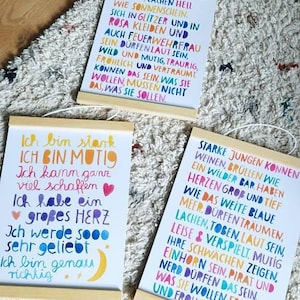 LACHEN HELL
WIE SONNENSCHEIN,
SICH IN GLITZER UND IN
ROSA KLEIDEN UND
AUCH FEUERWEHRFRAU
SEIN. DÜRFEN LAUT SEIN,
WILD UND MUTIG, TRAURIG,
FRÖHLICH UND VERTRÄUMT.
KÖNNEN DAS SEIN, WAS SIE
WOLLEN, MÜSSEN NICHT
DAS, WAS SIE SOLLEN.
Ich bin stark
ICH BIN MUTIG
Ich kann ganz
viel schaffen
Ich habe ein
großes HERZ
Ich werde sooo
sehr geliebt
Ich bin genau
richtig
STARKE JUNGEN KÖNNEN
WEINEN, BRÜLLEN WIE
EIN WILDER BÄR, HABEN
HERZEN GROSS UND TIEF
WIE DAS WEITE BLAUE
MEER. DÜRFEN TRÄUMEN,
LACHEN, TOBEN, LAUT SEIN,
LEISE & VERSPIELT, MUTIG
IHRE SCHWÄCHEN ZEIGEN,
EINHORN SEIN, PIRAT UND
NERD. DÜRFEN DAS SEIN,
WAS SIE WOLLEN,
UND